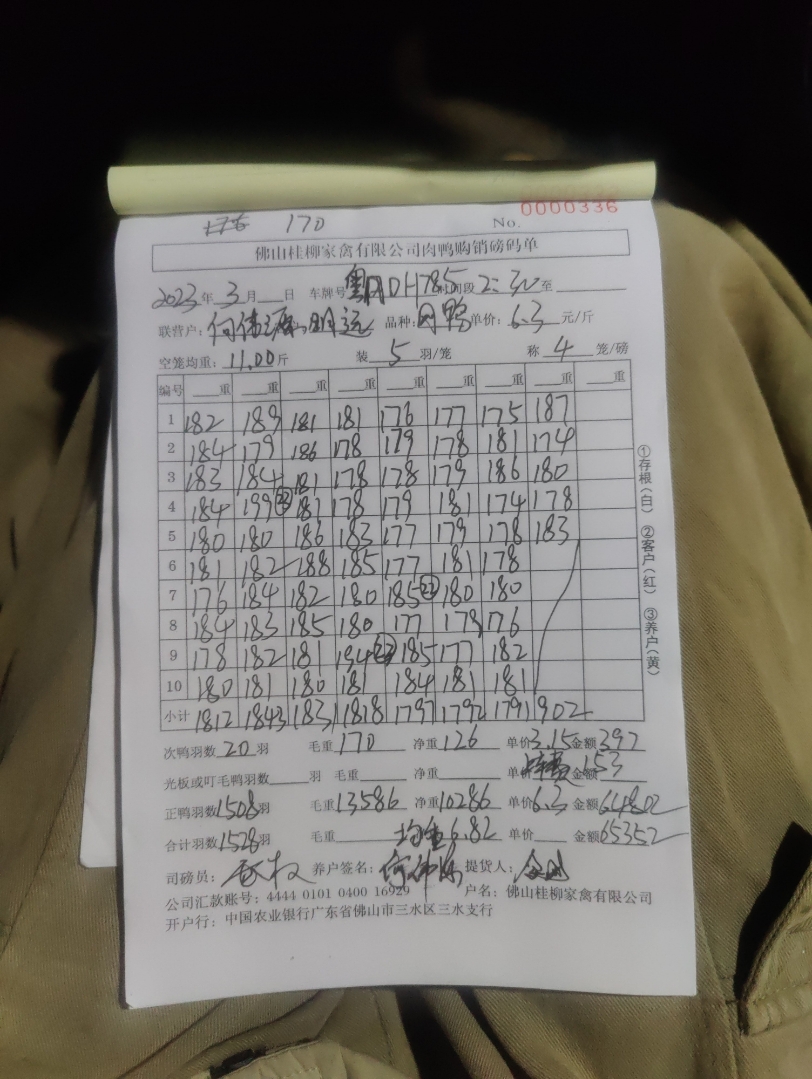 170 No. 0000336
佛山桂柳家禽有限公司肉鸭购销磅码单
2023年 3月 日 车牌号 粤ADH785 时间段 2:30 至
联营户: 何伟 明远 品种: 肉鸭 单价: 6.3 元/斤
空笼均重: 11.00斤 装 5 羽/笼 称 4 笼/磅
编号 重 重 重 重 重 重 重 重 重
1 182 189 181 181 176 177 175 187
2 184 179 186 178 179 178 181 174
3 183 184 181 178 178 179 186 180
4 184 199 181 178 179 181 174 178
5 180 180 186 183 177 179 178 183
6 181 182 188 185 177 181 178
7 176 184 182 180 185 22 180 180
8 184 183 185 180 177 179 176
9 178 182 181 194 22 185 177 182
10 180 181 180 181 184 181 181
小计 1812 1843 1831 1818 1797 1792 1791 902
次鸭羽数 20 羽 毛重 170 净重 126 单价 3.15 金额 397
光板或叮毛鸭羽数 羽 毛重 净重 单价 金额 153
正鸭羽数 1508 羽 毛重 13586 净重 10286 单价 6.3 金额 64802
合计羽数 1528 羽 毛重 均重 6.82 单价 金额 65352
司磅员: 养户签名: 提货人:
公司汇款账号: 4444 0101 0400 16929 户名: 佛山桂柳家禽有限公司
开户行: 中国农业银行广东省佛山市三水区三水支行
①存根(白) ②客户(红) ③养户(黄)